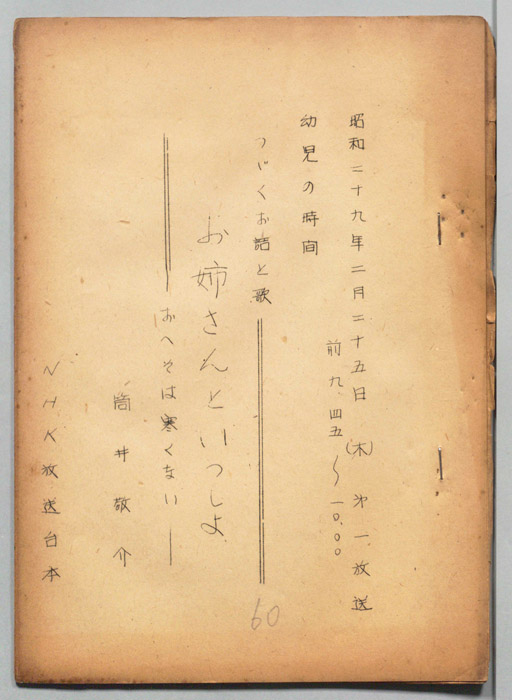 昭和二十九年二月二十五日(木)第一放送
前九.四五～一〇.〇〇
幼児の時間
つづくお話と歌
お姉さんといっしょ
おへそは寒くない
筒井敬介
NHK放送台本
60